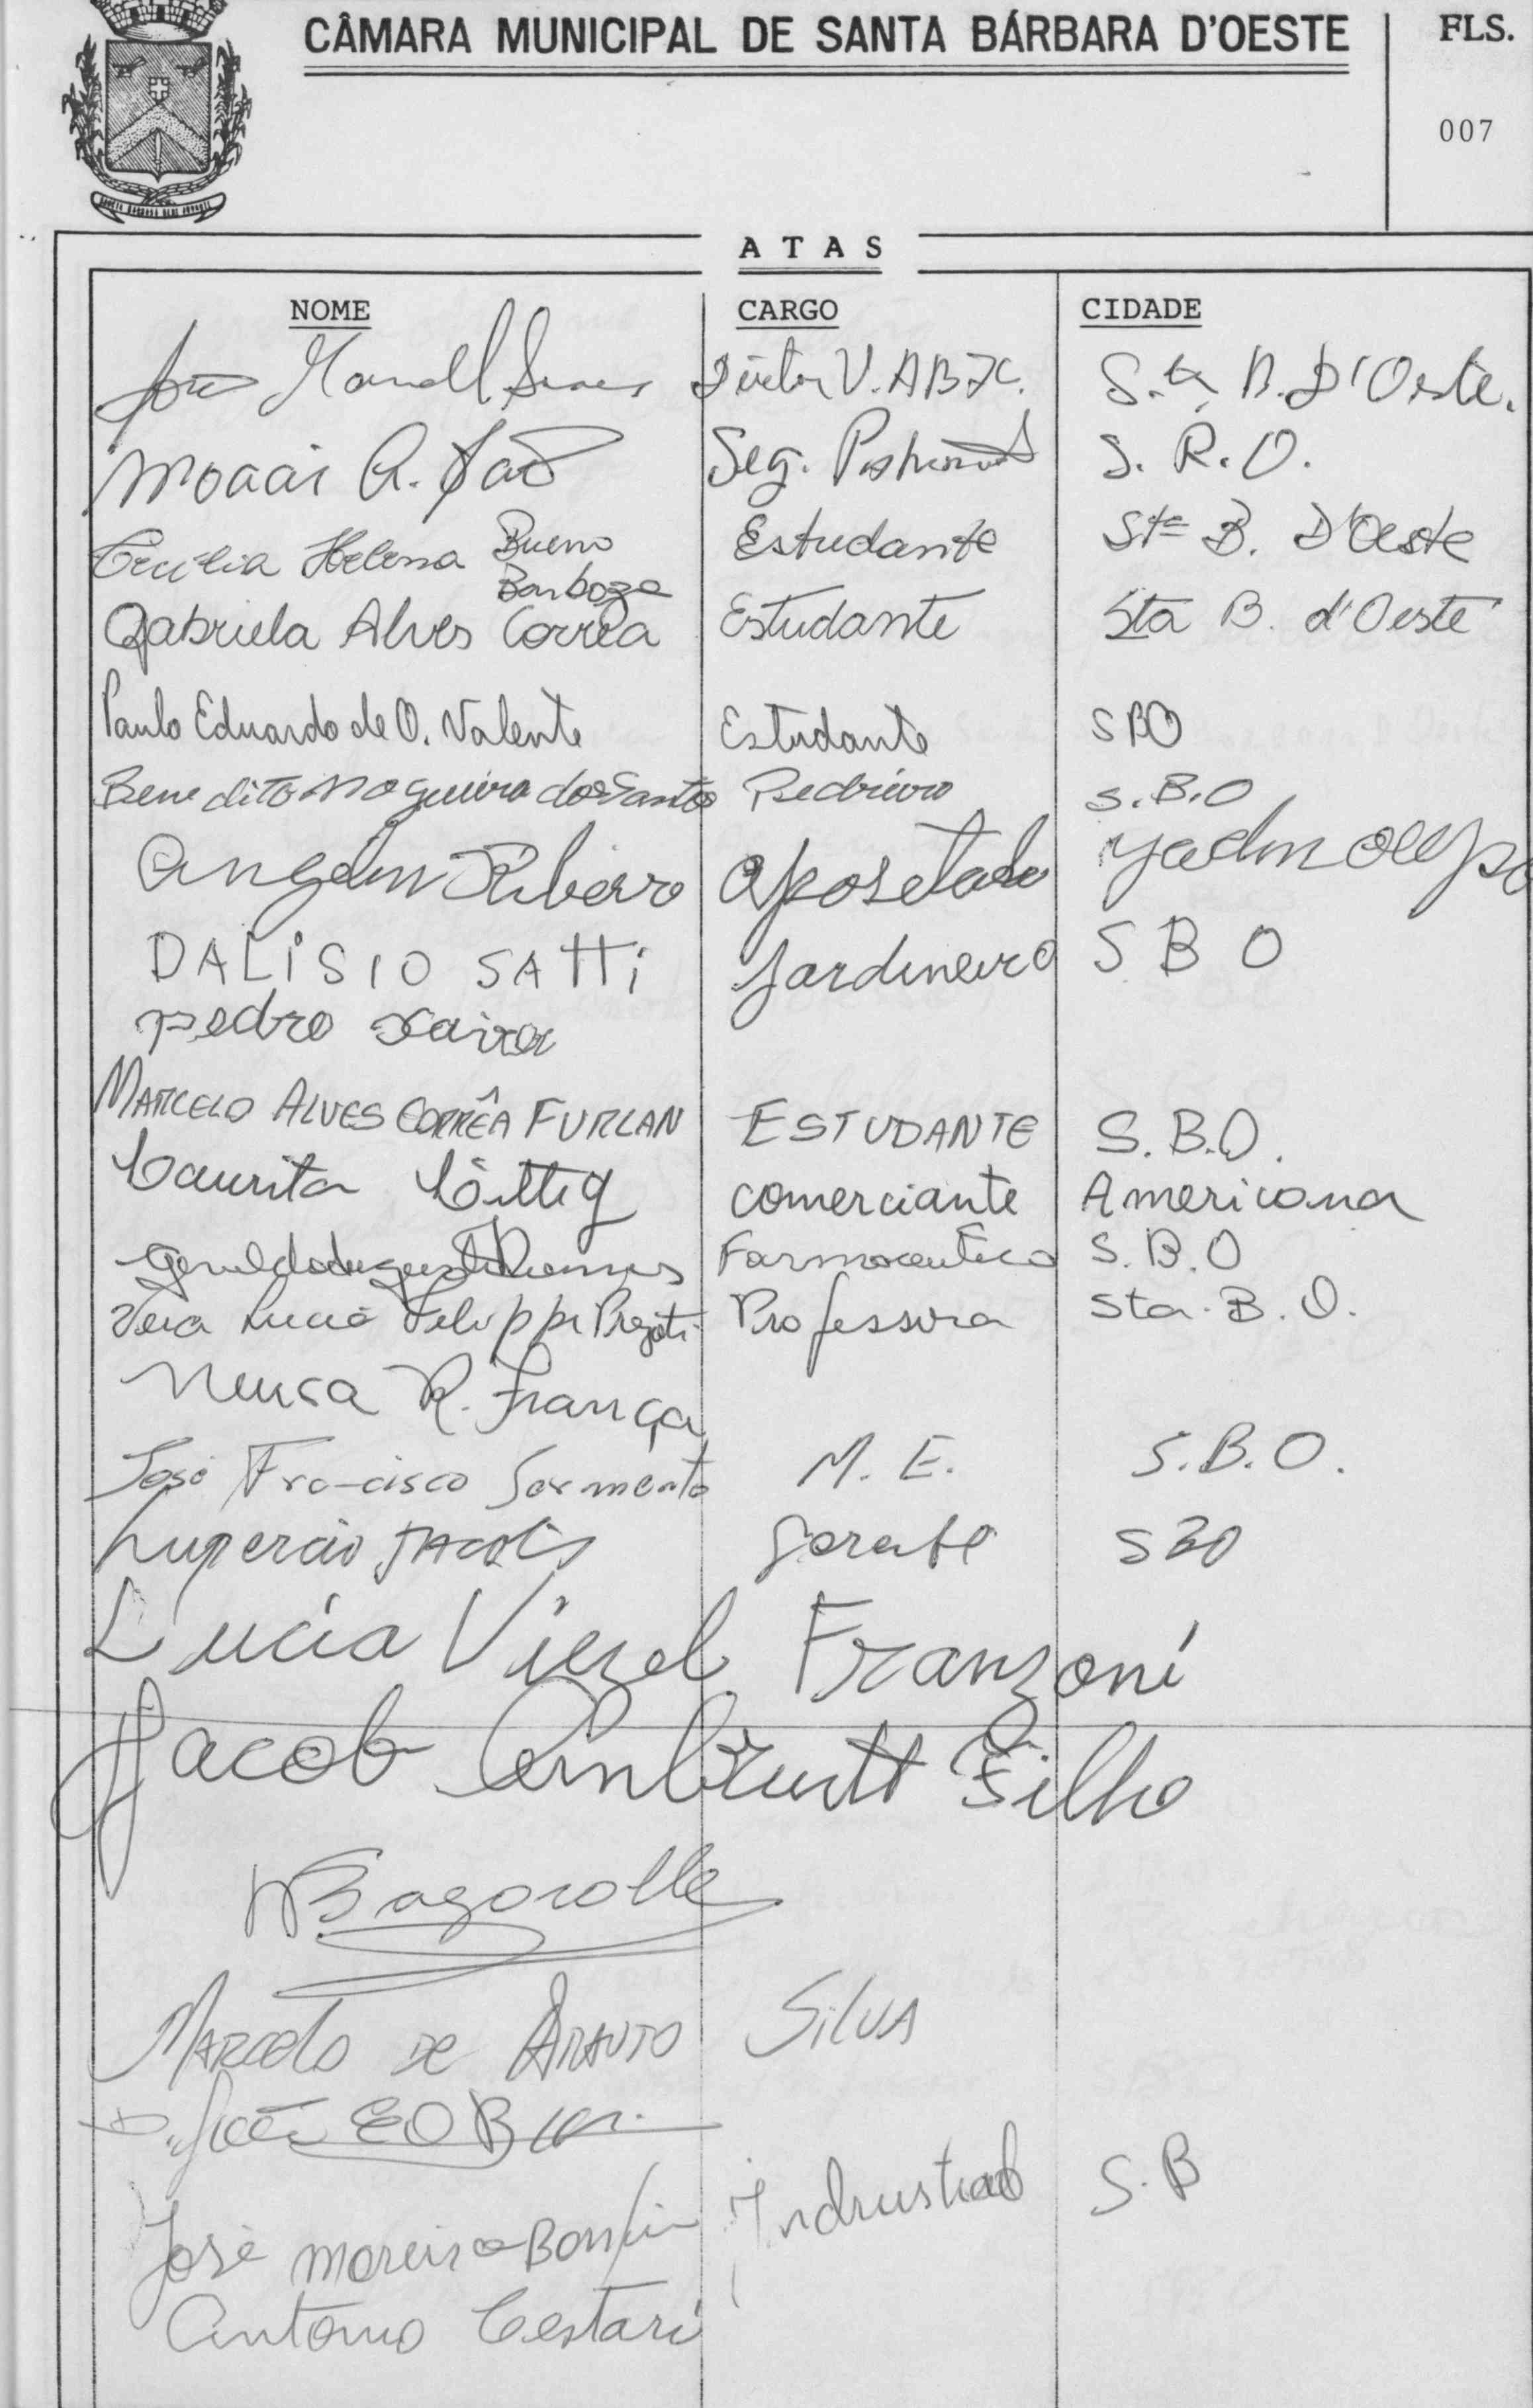 CÂMARA MUNICIPAL DE SANTA BÁRBARA D'OESTE FLS.
007
ATAS
NOME CARGO CIDADE
V. S.ta B. D'Oeste.
Moacir A. Seg. S. R. O.
Cecilia Helena Bueno Estudante Sta B. D'Oeste
Barboza
Gabriela Alves Corrêa Estudante Sta B. d'Oeste
Paulo Eduardo de O. Valente Estudante SBO
Benedito Nogueira dos Santos Pedrieiro S.B.O
Angelin Ribeiro Aposetado
DALISIO SATTi Jardineiro S B O
pedro
MARCELO ALVES CORRÊA FURLAN ESTUDANTE S.B.O.
Laurita comerciante Americana
Farmaceutico S.B.O
Vera Lucia Felippi Professora Sta. B. O.
Neusa R. França
José Francisco Sarmento M. E. S.B.O.
Lupercio JACOB SBO
Lucia Viezel Franzoni
Jacob Filho
MARCELO DE ARAUJO SilVA
José moreira Bonfim S.B
Antonio Cestari